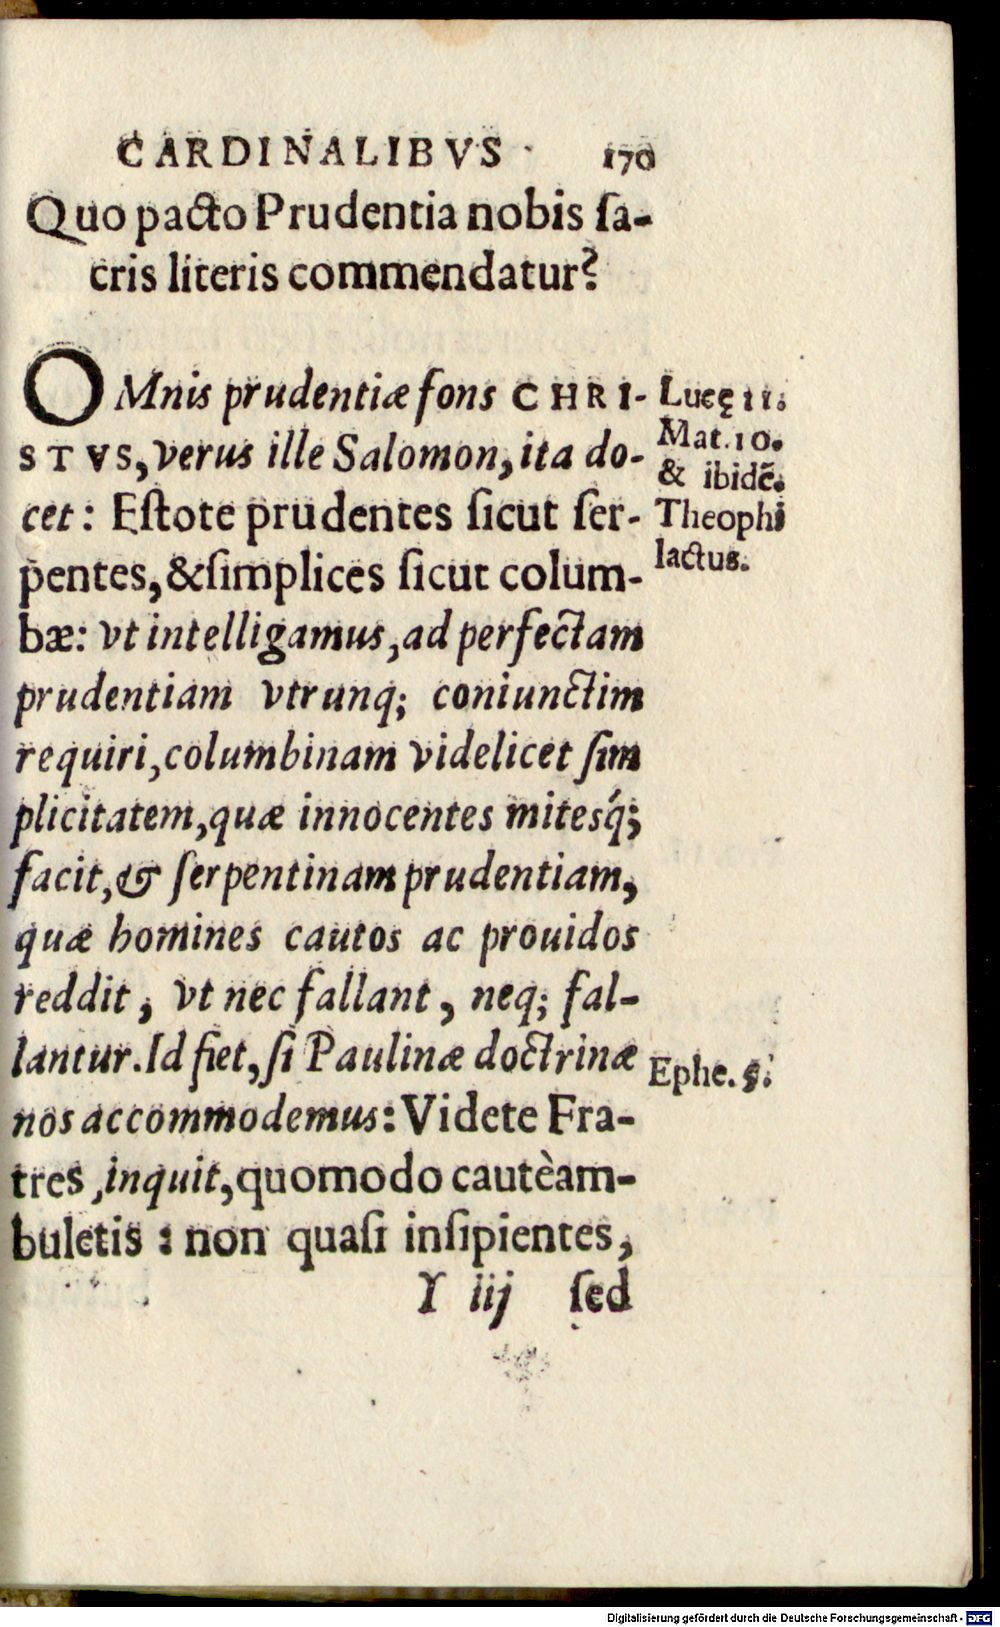 CARDINALIBVS 170
Quo pacto Prudentia nobis ſa-
cris literis commendatur?
OMnis prudentiæ fons CHRI-
STVS, verus ille Salomon, ita do-
cet: Eſtote prudentes ſicut ſer-
pentes, & ſimplices ſicut colum-
bæ: vt intelligamus, ad perfectam
prudentiam vtrunq; coniunctim
requiri, columbinam videlicet ſim
plicitatem, quæ innocentes mitesq́;
facit, & ſerpentinam prudentiam,
quæ homines cautos ac prouidos
reddit, vt nec fallant, neq; fal-
lantur. Id fiet, ſi Paulinæ doctrinæ
nos accommodemus: Videte Fra-
tres, inquit, quomodo cautè am-
buletis: non quaſi inſipientes,
Y iij ſed
Lucę 11.
Mat. 10.
& ibidẽ.
Theophi
lactus.
Ephe. 5.
Digitalisierung gefördert durch die Deutsche Forschungsgemeinschaft - DFG